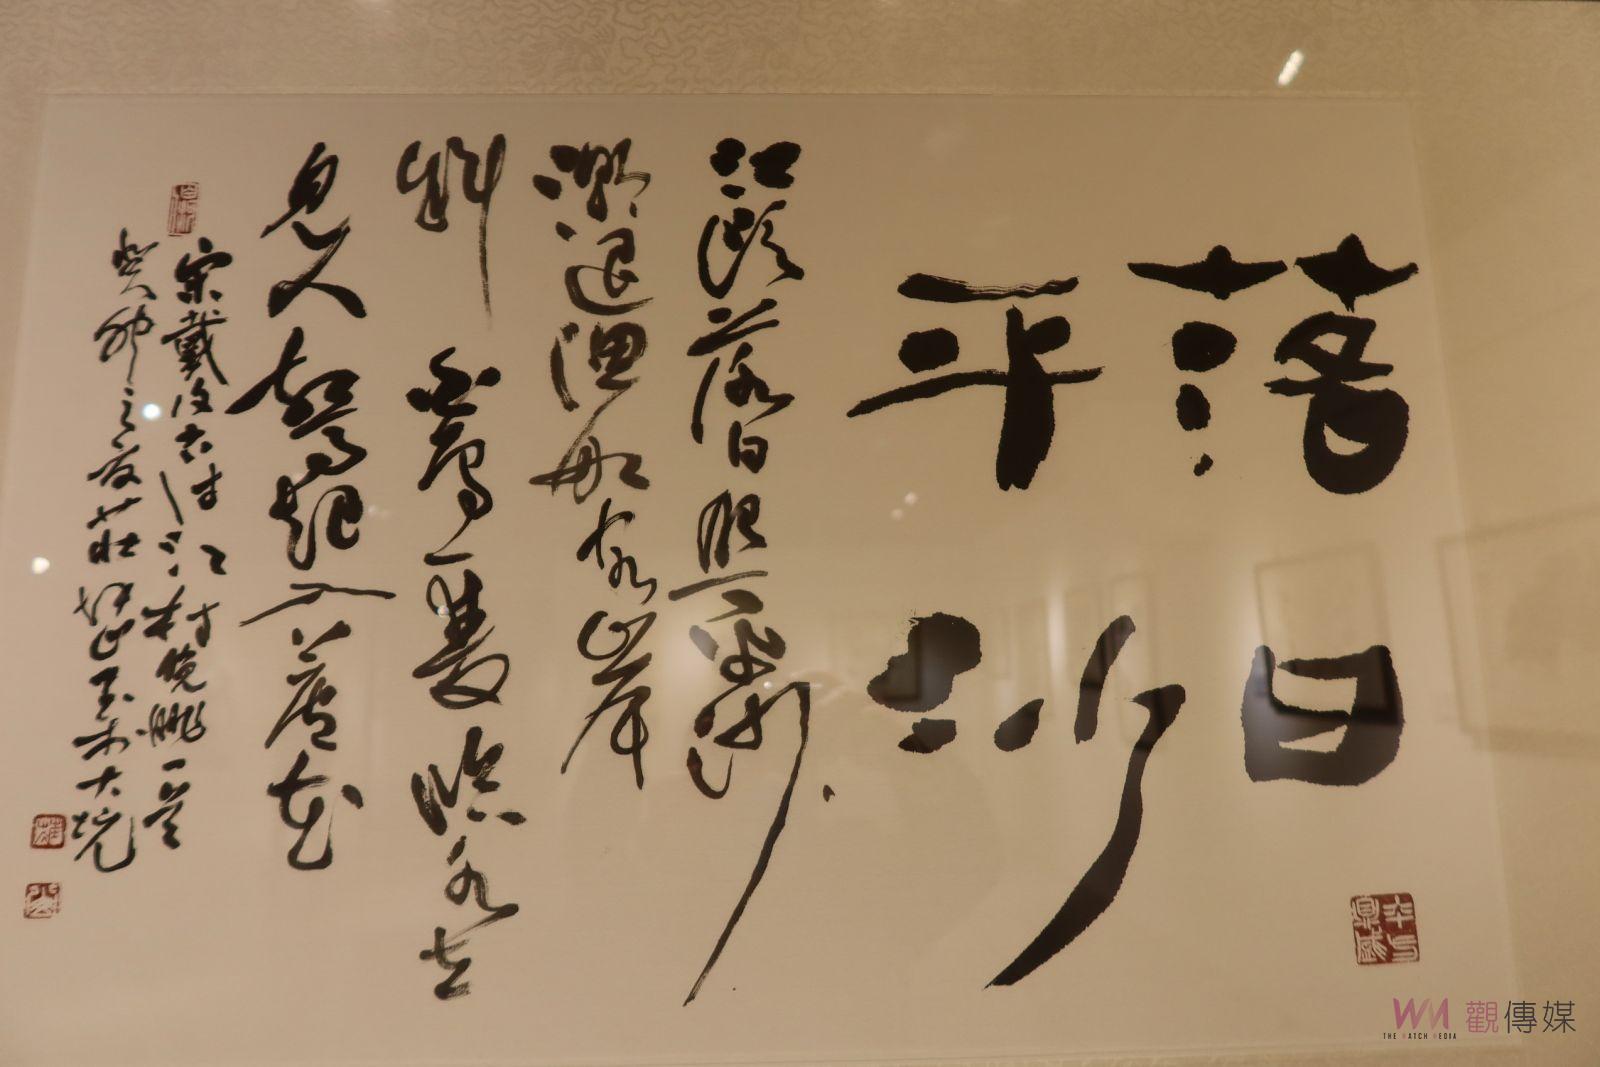 落日
平沙
江頭落日照平沙
潮退漁船閣岸
斜 白鳥一雙臨水立
見人驚起入蘆花
宋戴復古詩江村晚眺一首
癸卯之夏莊
大墩
觀傳媒
THE WATCH MEDIA